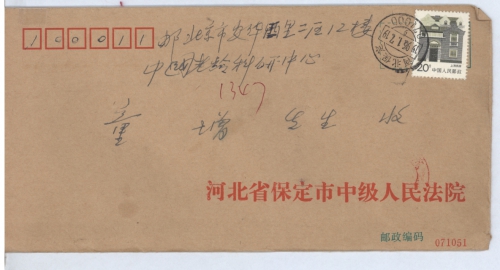 100011
邮北京市安华西里二区12楼
中国老龄科研中心
1347
童 增 先生 收
20分
中国人民邮政
河北省保定市中级人民法院
邮政编码 071051